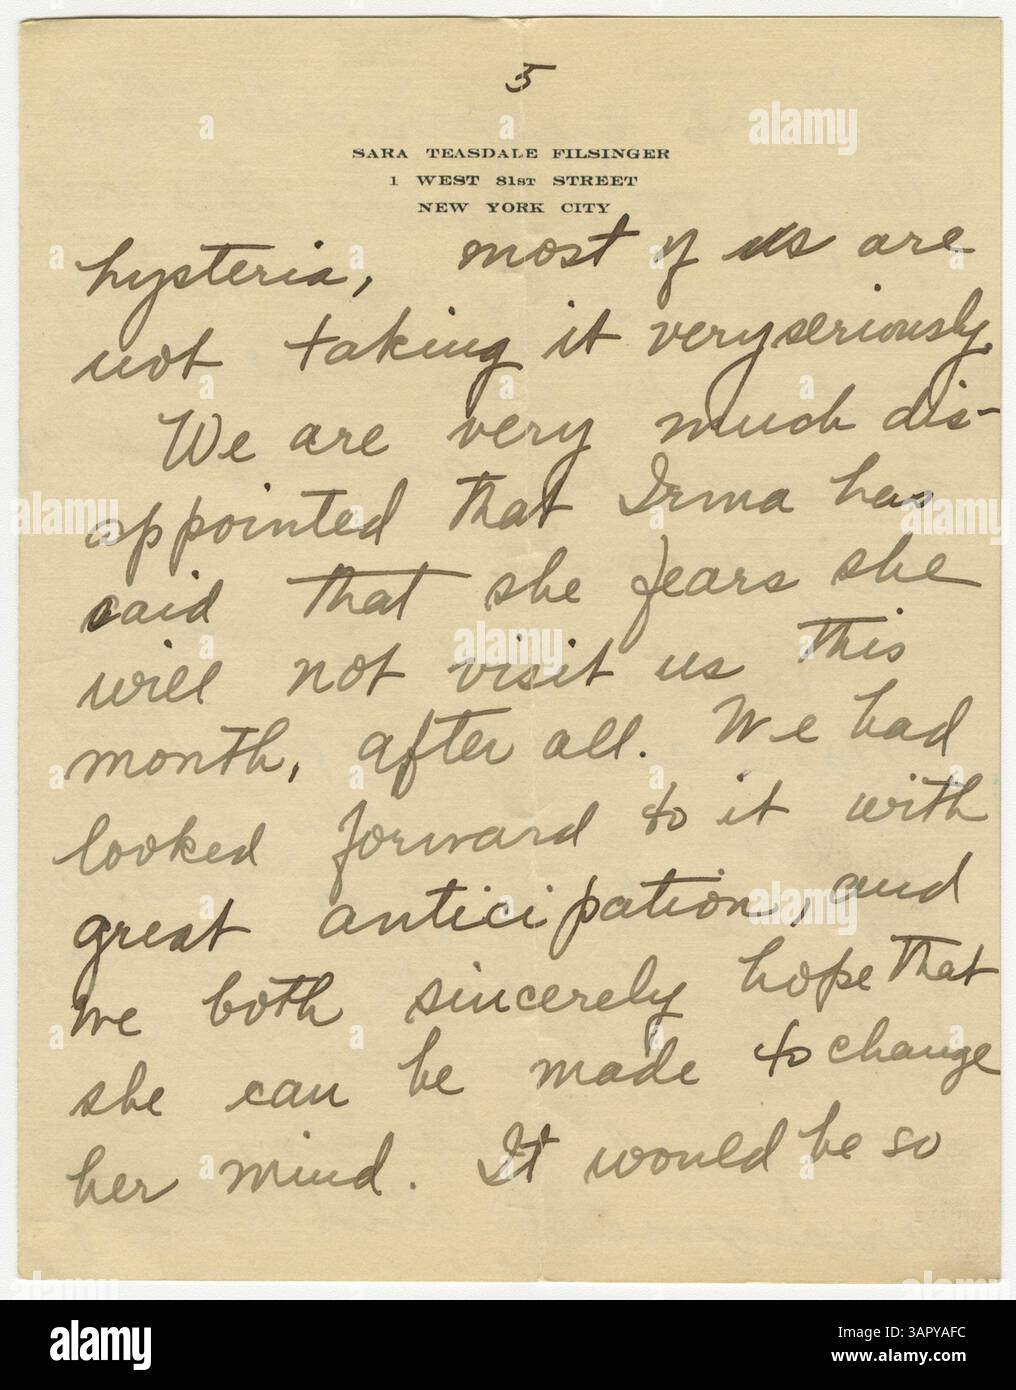 5
SARA TEASDALE FILSINGER
1 WEST 81ST STREET
NEW YORK CITY
hysteria, most of us are
not taking it very seriously.
We are very much dis-
appointed that Irma has
said that she fears she
will not visit us this
month, after all. We had
looked forward to it with
great anticipation, and
we both sincerely hope that
she can be made to change
her mind. It would be so
alamy
Image ID: 3APYAFC
www.alamy.com